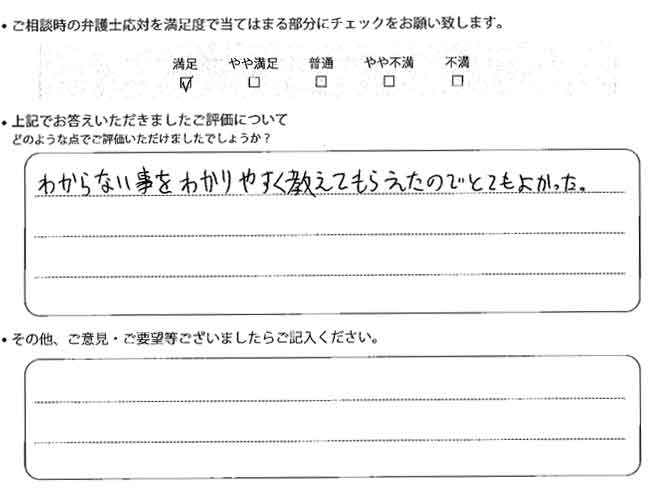 ・ご相談時の弁護士応対を満足度で当てはまる部分にチェックをお願い致します。
満足 やや満足 普通 やや不満 不満
☑ ☐ ☐ ☐ ☐
・上記でお答えいただきましたご評価について
どのような点でご評価いただけましたでしょうか？
わからない事をわかりやすく教えてもらえたのでとてもよかった。
・その他、ご意見・ご要望等ございましたらご記入ください。